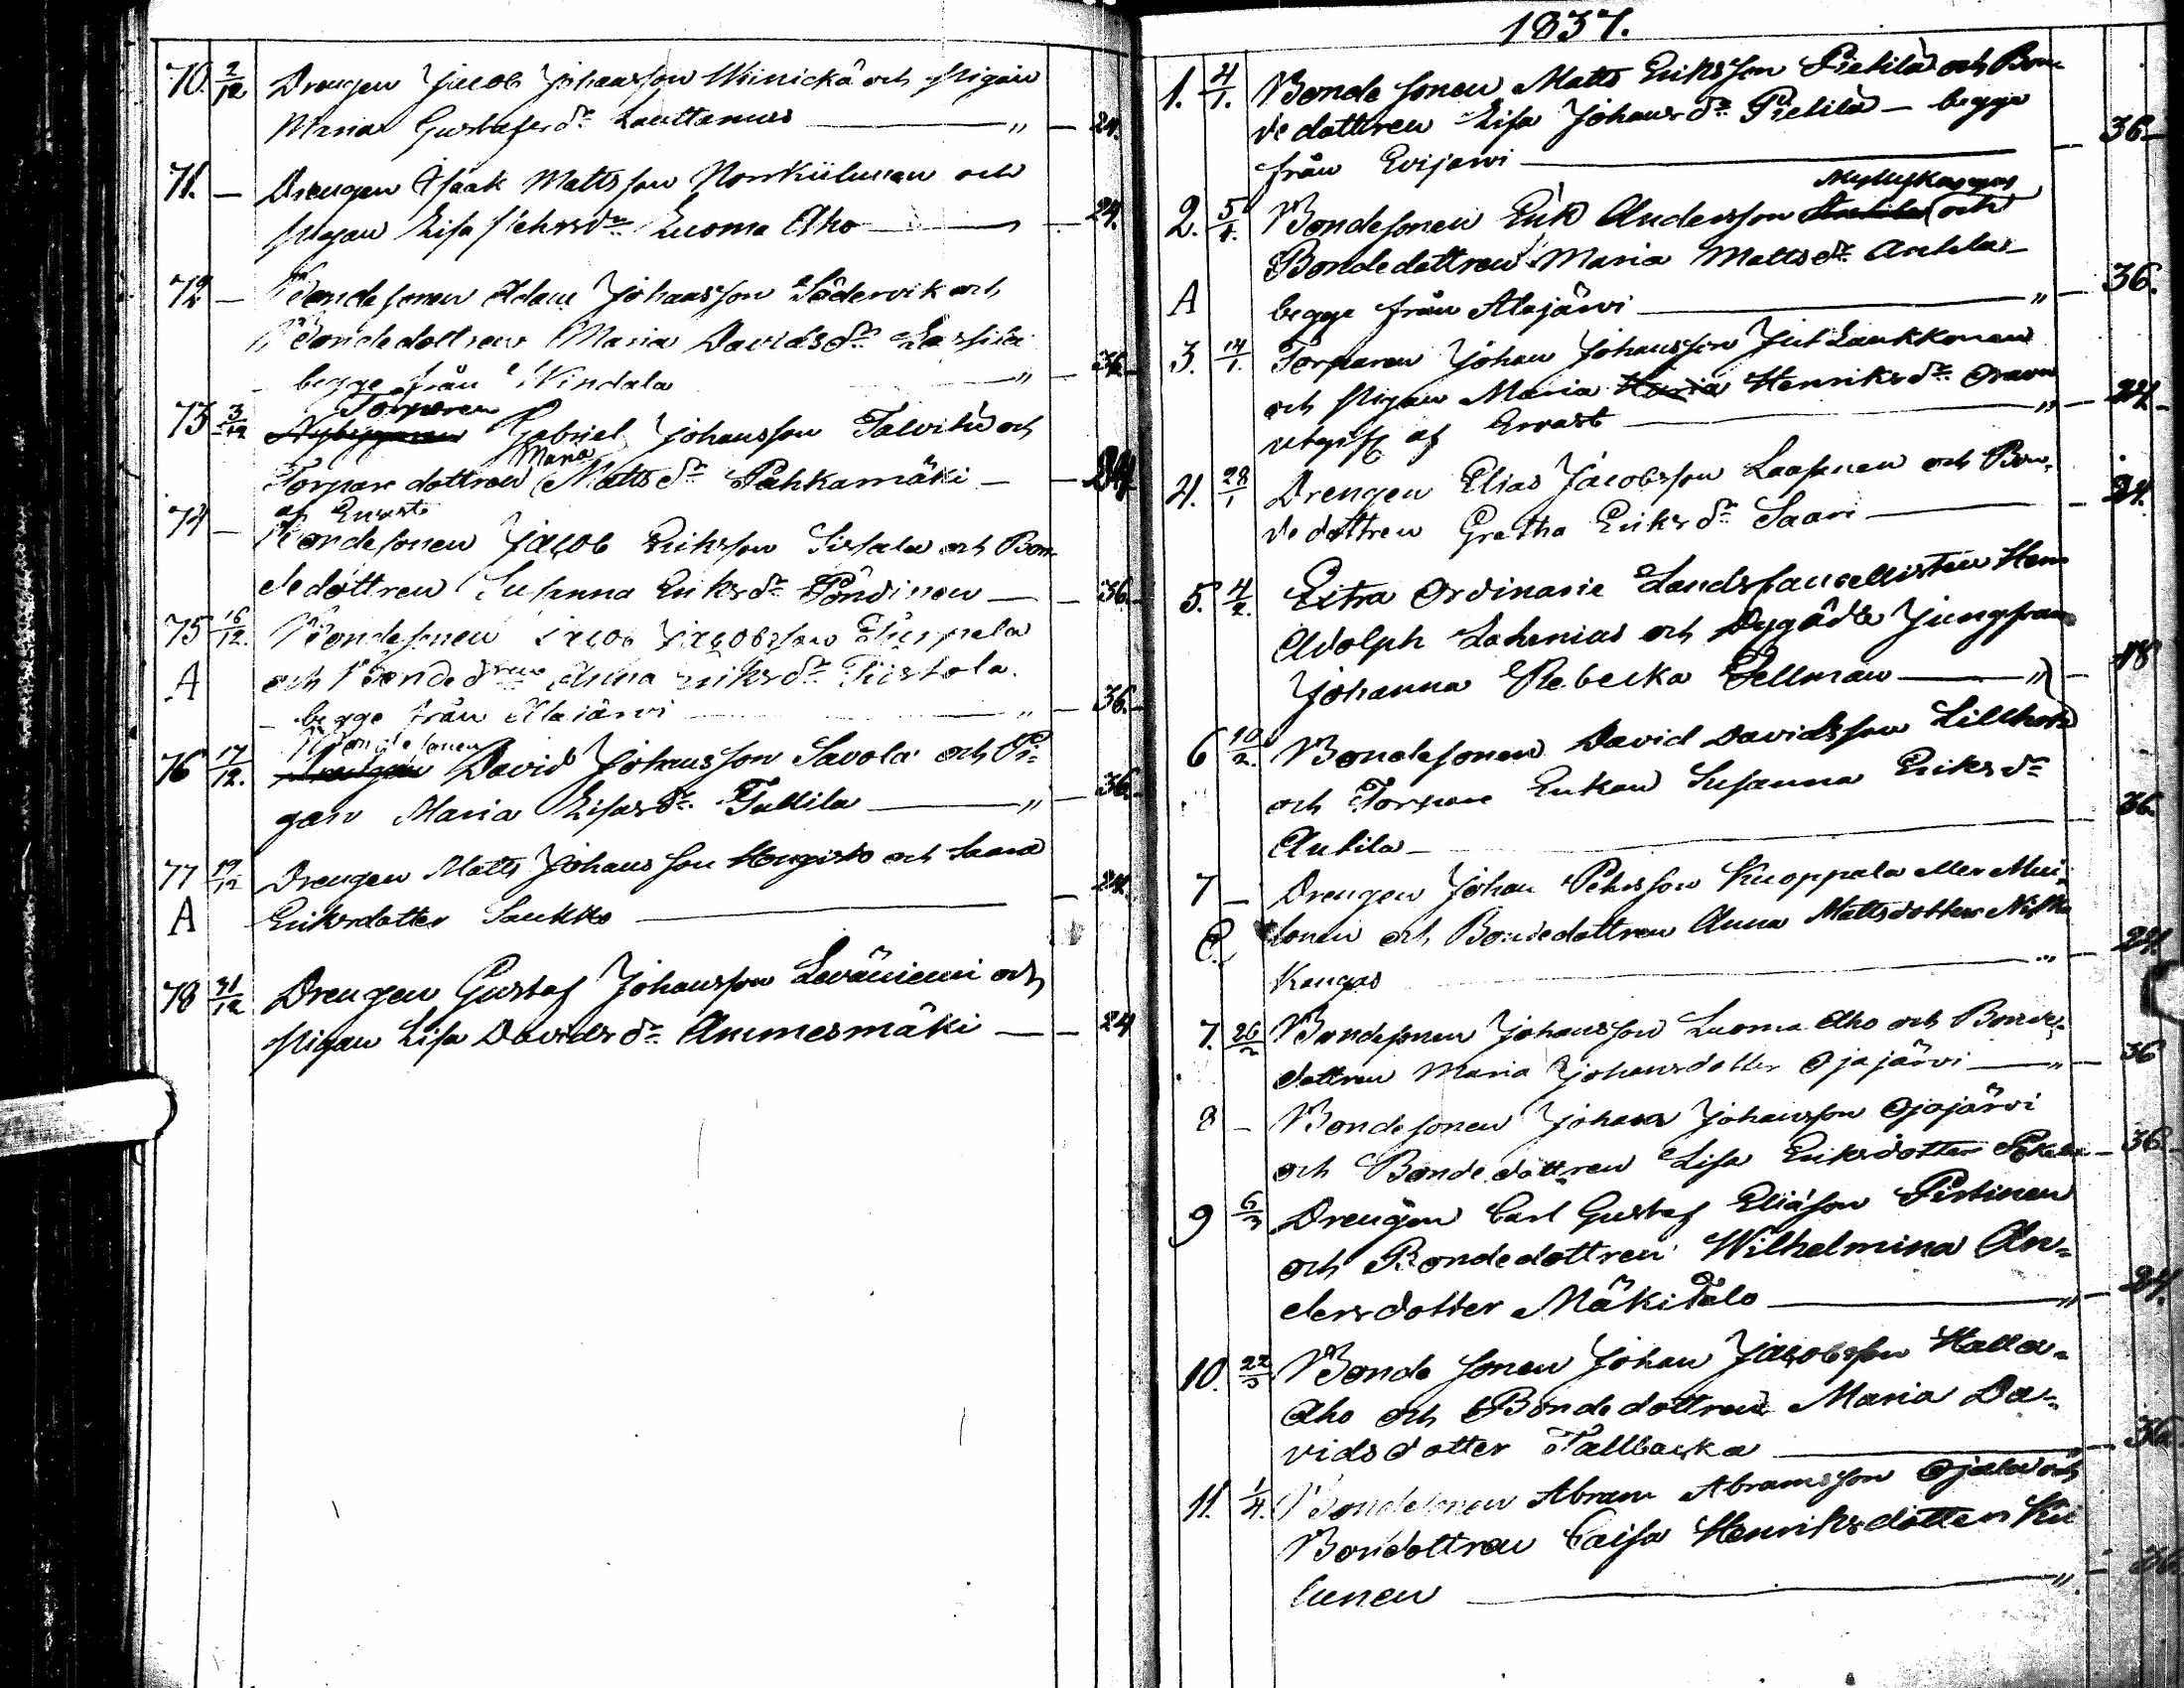 70. 2/12 Drengen Jacob Johansson Winickä och Pigan
Maria Gustafsdr Lauttamus — " — 24.
71. — Drengen Isaak Mattsson Norrkiilunen och
Pigan Lisa Pehrsdr Luoma Aho — 24.
72 — Bondesonen Adam Johansson Södervik och
Bondedottren Maria Davidsdr Lassila
begge från Windala " — 36.
Torparen
73 3/12 Nybyggaren Gabriel Johansson Talvitie och
Maria
Torpare dottren Mattsdr Pahkamäki — — 24
af Envest
74 — Bondesonen Jacob Eriksson Sissala och Bon
dedottren Susanna Eriksdr Pöndinen — — 36.
75 16/12. Bondesonen Jacob Jacobsson
A och Bonded:ren Anna Eriksdr Tiistola.
begge från Alajärvi — " — 36.
Bondesonen
76 17/12. Drengen David Johansson Savola och Pi-
gan Maria Lisasdr Tallila — " — 36.
77 19/12 Drengen Matts Johansson Hongisto och Saara
A Eriksdotter Saukko — — 24.
78 31/12 Drengen Gustaf Johansson Leväniemi och
Pigan Lisa Davidsdr Ammesmäki — — 24
1837.
1. 4/1. Bonde sonen Matts Eriksson Pietilä och Bon
dedottren Lisa Johansdr Pietilä — begge
från Evijerwi — — 36.
Myllykangas
2. 5/1. Bondesonen Erik Andersson Anttila och
Bondedottren Maria Mattsdr Anttila
A begge från Alajärvi — " — 36.
3. 14/1. Torparen Johan Johansson Jut Laukkonen
och Pigan Maria Maria Henriksdr Oravn
utgift af Envest — " — 24.
4. 28/1 Drengen Elias Jacobsson Laasanen och Bon-
dedottren Gretha Eriksdr Saari — — 24.
5. 4/2. Extra Ordinarie Landscancellisten Herr
Adolph Lathenius och Dygdädla Jungfrau
Johanna Rebecka Hellman — " — 48
6 10/2. Bondesonen David Davidsson Lillkoto
och Torpare Enkan Susanna Eriksdr
Antila — — 36
7 — Drengen Johan Pehrsson Knoppala eller Mui-
lonen och Bondedottren Anna Mattsdotter Niska
Kangas — " — 24.
7. 26/2 Bondesonen Johansson Luoma Aho och Bonde-
dottren Maria Johansdotter Ojajärvi — " — 36
8 — Bondesonen Johan Johansson Ojajärvi
och Bonde dottren Lisa Eriksdotter — 36.
9 6/3 Drengen Carl Gustaf Eliasson Pistinen
och Bondedottren Wilhelmina An-
dersdotter MäkiTalo — " — 24.
10. 22/3 Bonde sonen Johan Jacobsson Halla-
Aho och Bondedottren Maria Da-
vidsdotter Tallbacka — — 36
11. 1/4. Bondesonen Abram Abramsson Ojala och
Bondottren Caisa Henriksdotter Kii
lunen — " — 36